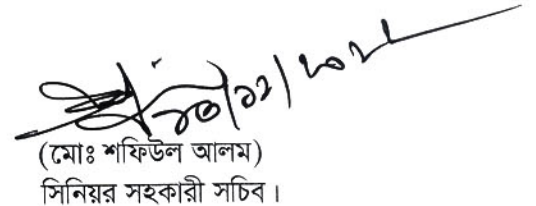 (মোঃ শফিউল আলম)
সিনিয়র সহকারী সচিব।